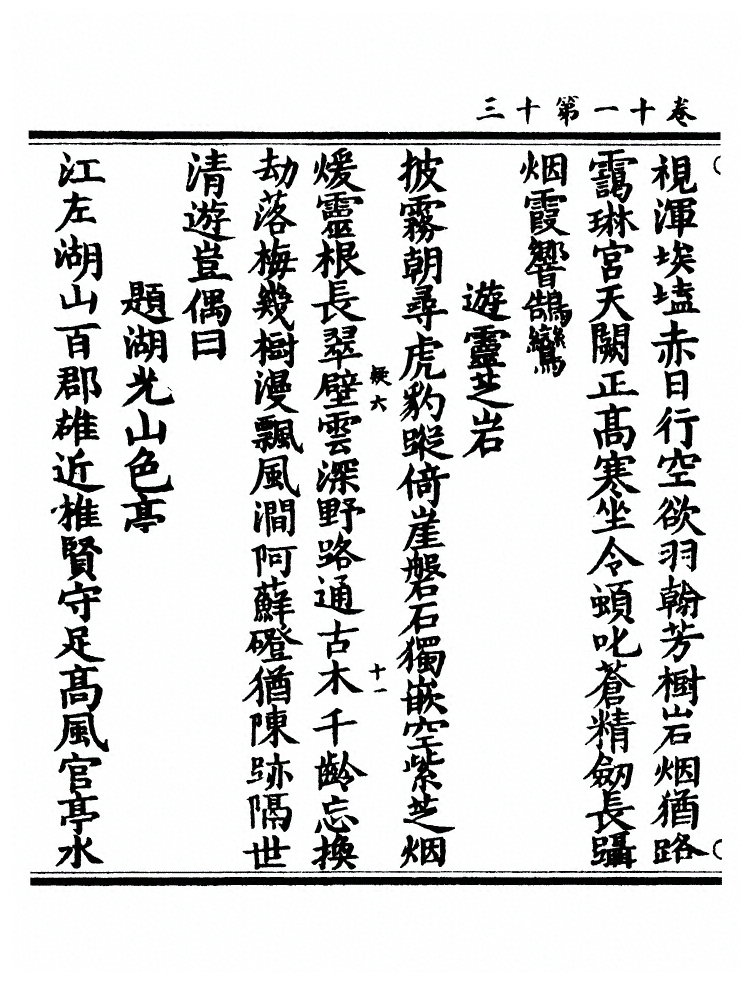 卷十一第十三
視渾埃壒赤日行空欲羽翰芳樹岩烟猶路
靄琳宮天闕正髙寒坐令頓叱蒼精劒長躡
烟霞響鵠鸞
遊靈芝岩
披霧朝尋虎豹蹤倚崖磐石獨嵌空紫芝烟
疑六
十一
煖靈根長翠壁雲深野路通古木千齡忘換
劫落梅幾樹漫飄風澗阿蘚磴猶陳跡隔世
清遊豈偶曰
題湖光山色亭
江左湖山百郡雄近推賢守足髙風官亭水